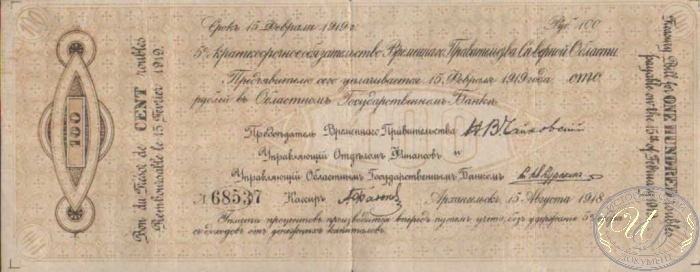 Срокъ 15 Февраля 1919 г. Руб. 100
5% краткосрочное обязательство Временнаго Правительства Сѣверной Области
Предъявителю сего уплачивается 15 Февраля 1919 года сто
рублей въ Областномъ Государственномъ Банкѣ
Предсѣдатель Временнаго Правительства Н В Чайковский
Управляющій Отдѣломъ Финансовъ и
Управляющій Областнымъ Государственнымъ Банкомъ
№ 68537 Кассиръ Архангельскъ, 15 Августа 1918
Уплата процентовъ производится впередъ путемъ учета, безъ удержанія 5%
съ доходовъ отъ денежныхъ капиталовъ.
Bon du Trésor de CENT roubles
Remboursable le 15 Février 1919.
100
Treasury Bill for ONE HUNDRED
payable on the 15th of February
100
100